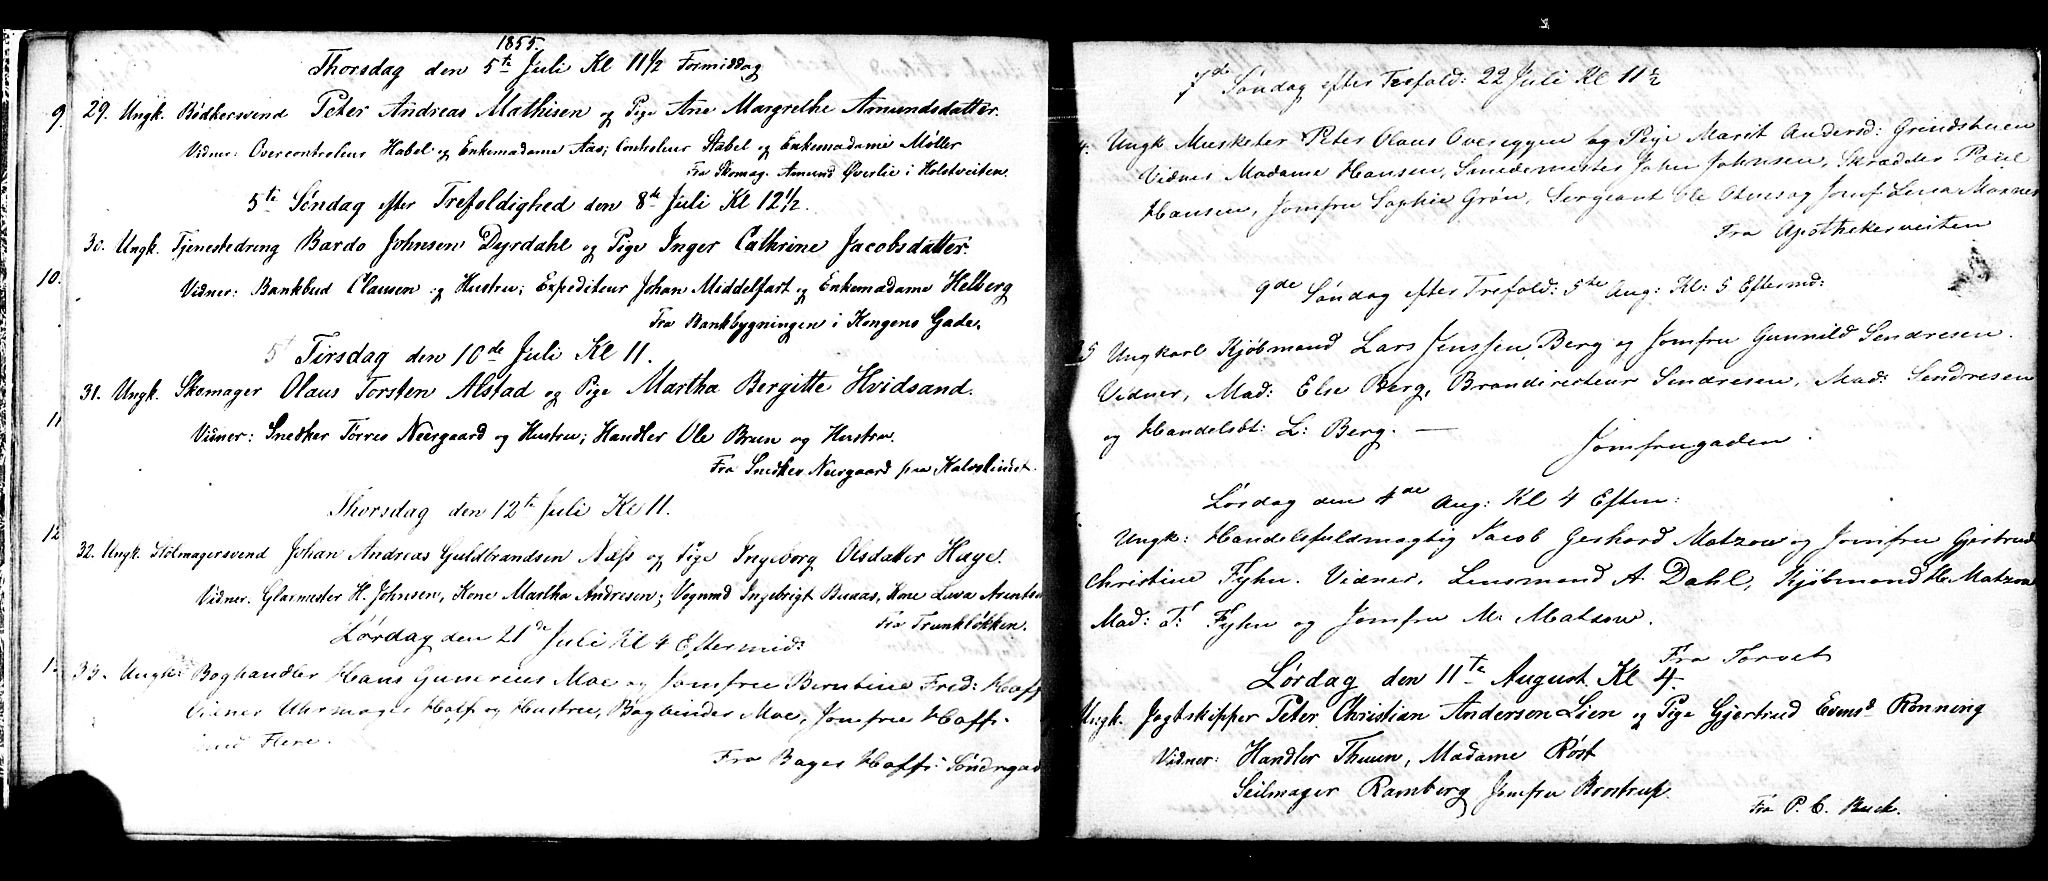 1855.
Thorsdag den 5te Juli Kl 11 1/2 Formiddag
9. 29. Ungk. Bødkersvend Peter Andreas Mathisen og Pige Ane Margrethe Amundsdatter.
Vidner: Overcontroleur Habel og Enkemadame Aas; Controleur Stabel og Enkemadame Møller
Fra Skomag. Amund Øverlie i Holstveiten.
5te Søndag efter Trefoldighed den 8de Juli Kl 12 1/2.
30. Ungk. Tjenestedreng Bardo Johnsen Dyrdahl og Pige Inger Cathrine Jacobsdatter.
10. Vidner: Bankbud Clausen og Hustru; Expediteur Johan Middelfart og Enkemadame Helberg
Fra Bankbygningen i Kongens Gade.
Tirsdag den 10de Juli Kl 11.
31. Ungk. Skomager Olaus Torsten Alstad og Pige Martha Bergitte Hvidsand.
11 Vidner: Snedker Torres Neergaard og Hustru; Handler Ole Brun og Hustru.
Fra Snedker Neergaard paa Kalvskindet.
Thorsdag den 12te Juli Kl 11.
12 32. Ungk. Stolmagersvend Johan Andreas Guldbrandsen Næss og Pige Ingeborg Olsdatter Hage.
Vidner. Glarmester H. Johnsen, Kone Martha Andresen; Vognmd Ingebrigt Buaas, Kone Lava Arentsen
Fra Trunkløkken.
Lørdag den 21de Juli Kl 4 Eftermid:
33. Ungk: Boghandler Hans Gunerius Moe og Jomfru Berntine Fred: Hoff
Vidner Uhrmager Hoff og Hustru, Bogbinder Moe, Jomfru Hoff
Flere.
Fra Bager Hoff: Søndregad
7de Søndag efter Trefold: 22 Juli Kl 11 1/2
4. Ungk Musketer Peter Olaus Overeggen og Pige Marit Andersd: Grindstuen
Vidner Madame Hansen, Smedemester John Johnsen, Skrædder Paul
Hansen, Jomfru Sophie Grøn, Sergeant Ole Olsen og Jomf Lena Moxnes
Fra Apothekerveiten
9de Søndag efter Trefold: 5te Aug: Kl: 5 Eftermd:
35 Ungkarl Kjøbmand Lars Jenssen Berg og Jomfru Gunnild Sendresen.
Vidner, Mad: Else Berg, Brandirecteur Sendresen, Mad: Sendresen
og Handelsbt: L: Berg. —
Jomfrugaden.
Lørdag den 4de Aug: Kl 4 Efterm:
Ungk: Handelsfuldmægtig Jacob Gerhard Matzow og Jomfru Gjertrud
Christine Fyhn. Vidner, Lensmand A. Dahl, Kjøbmand H. Matzow
Mad: T: Fyhn og Jomfru M. Matzow.
Fra Torvet
Lørdag den 11te August Kl 4.
Ungk. Jagtskipper Peter Christian Andersen Lien og Pige Gjertrud Evensd Rønning
Vidner: Handler Thuen, Madame Røst
Seilmager Ramberg Jomfru Brostrup.
Fra P. C. Buck.